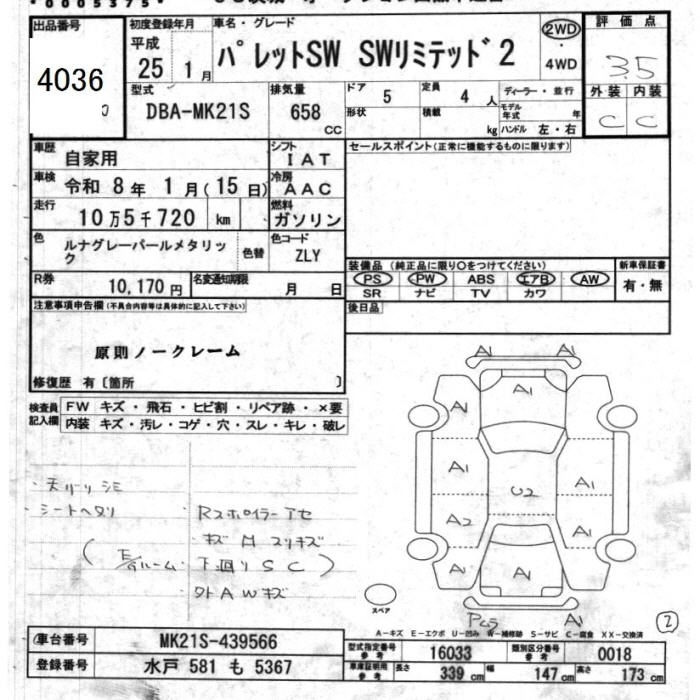 *0005375*
出品番号
4036
初度登録年月
平成
25 1月
車名・グレード
パレットSW SWリミテッド2
2WD
・
4WD
評価点
3.5
外装 内装
C C
型式
DBA-MK21S
排気量
658
CC
ドア 5
形状
定員 4 人
積載 kg
ディーラー・並行
モデル年式 年
ハンドル 左・右
車歴
自家用
シフト
IAT
セールスポイント(正常に機能するものに限ります)
車検
令和 8年 1月(15日)
冷房
AAC
走行
10万5千720 km
燃料
ガソリン
色
ルナグレーパールメタリック
色替
色コード
ZLY
装備品 (純正品に限り○をつけてください)
新車保証書
PS PW ABS エアB AW
SR ナビ TV カワ
有・無
R券
10,170円
名変通知期限
月 日
後日品
注意事項申告欄(不具合内容等は具体的に記入して下さい)
原則ノークレーム
修復歴 有〔箇所 〕
検査員
記入欄
FW キズ・飛石・ヒビ割・リペア跡・×要
内装 キズ・汚レ・コゲ・穴・スレ・キレ・破レ
・天リーリシミ
・シートヘタリ
・Rスポイラーアセ
・キズ M スリキズ
(E/gルーム・下廻りSC)
・外AWキズ
A1 A1
A1
A1 A1
A1 A1
U2
A2 A1
A1 A1 A1
A1
スペア
2
A-キズ E-エクボ U-凹み W-補修跡 S-サビ C-腐食 XX-交換済
車台番号
MK21S-439566
登録番号
水戸 581 も 5367
型式指定番号
参考
16033
類別区分番号
参考
0018
車庫証明用
参考
長さ 339 cm
幅 147 cm
高さ 173 cm